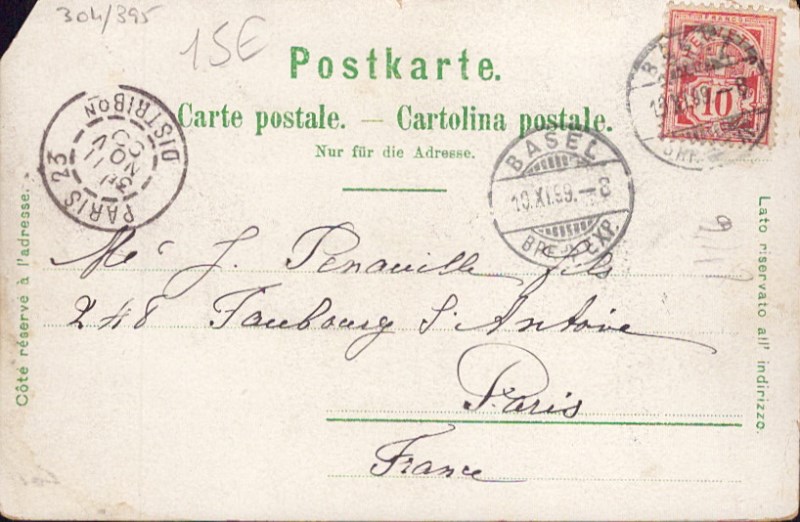 304/395
15€
Postkarte.
Carte postale. — Cartolina postale.
Nur für die Adresse.
BASEL
10.XI.99.–8
BASEL
10.XI.99.–8
BRF. EXP.
10
FRANCO
PARIS 23
DISTRIBON
11
NOV
99
Côté réservé à l'adresse.
Lato riservato all' indirizzo.
Mr J. Penauille fils
248 Faubourg St Antoine
Paris
France